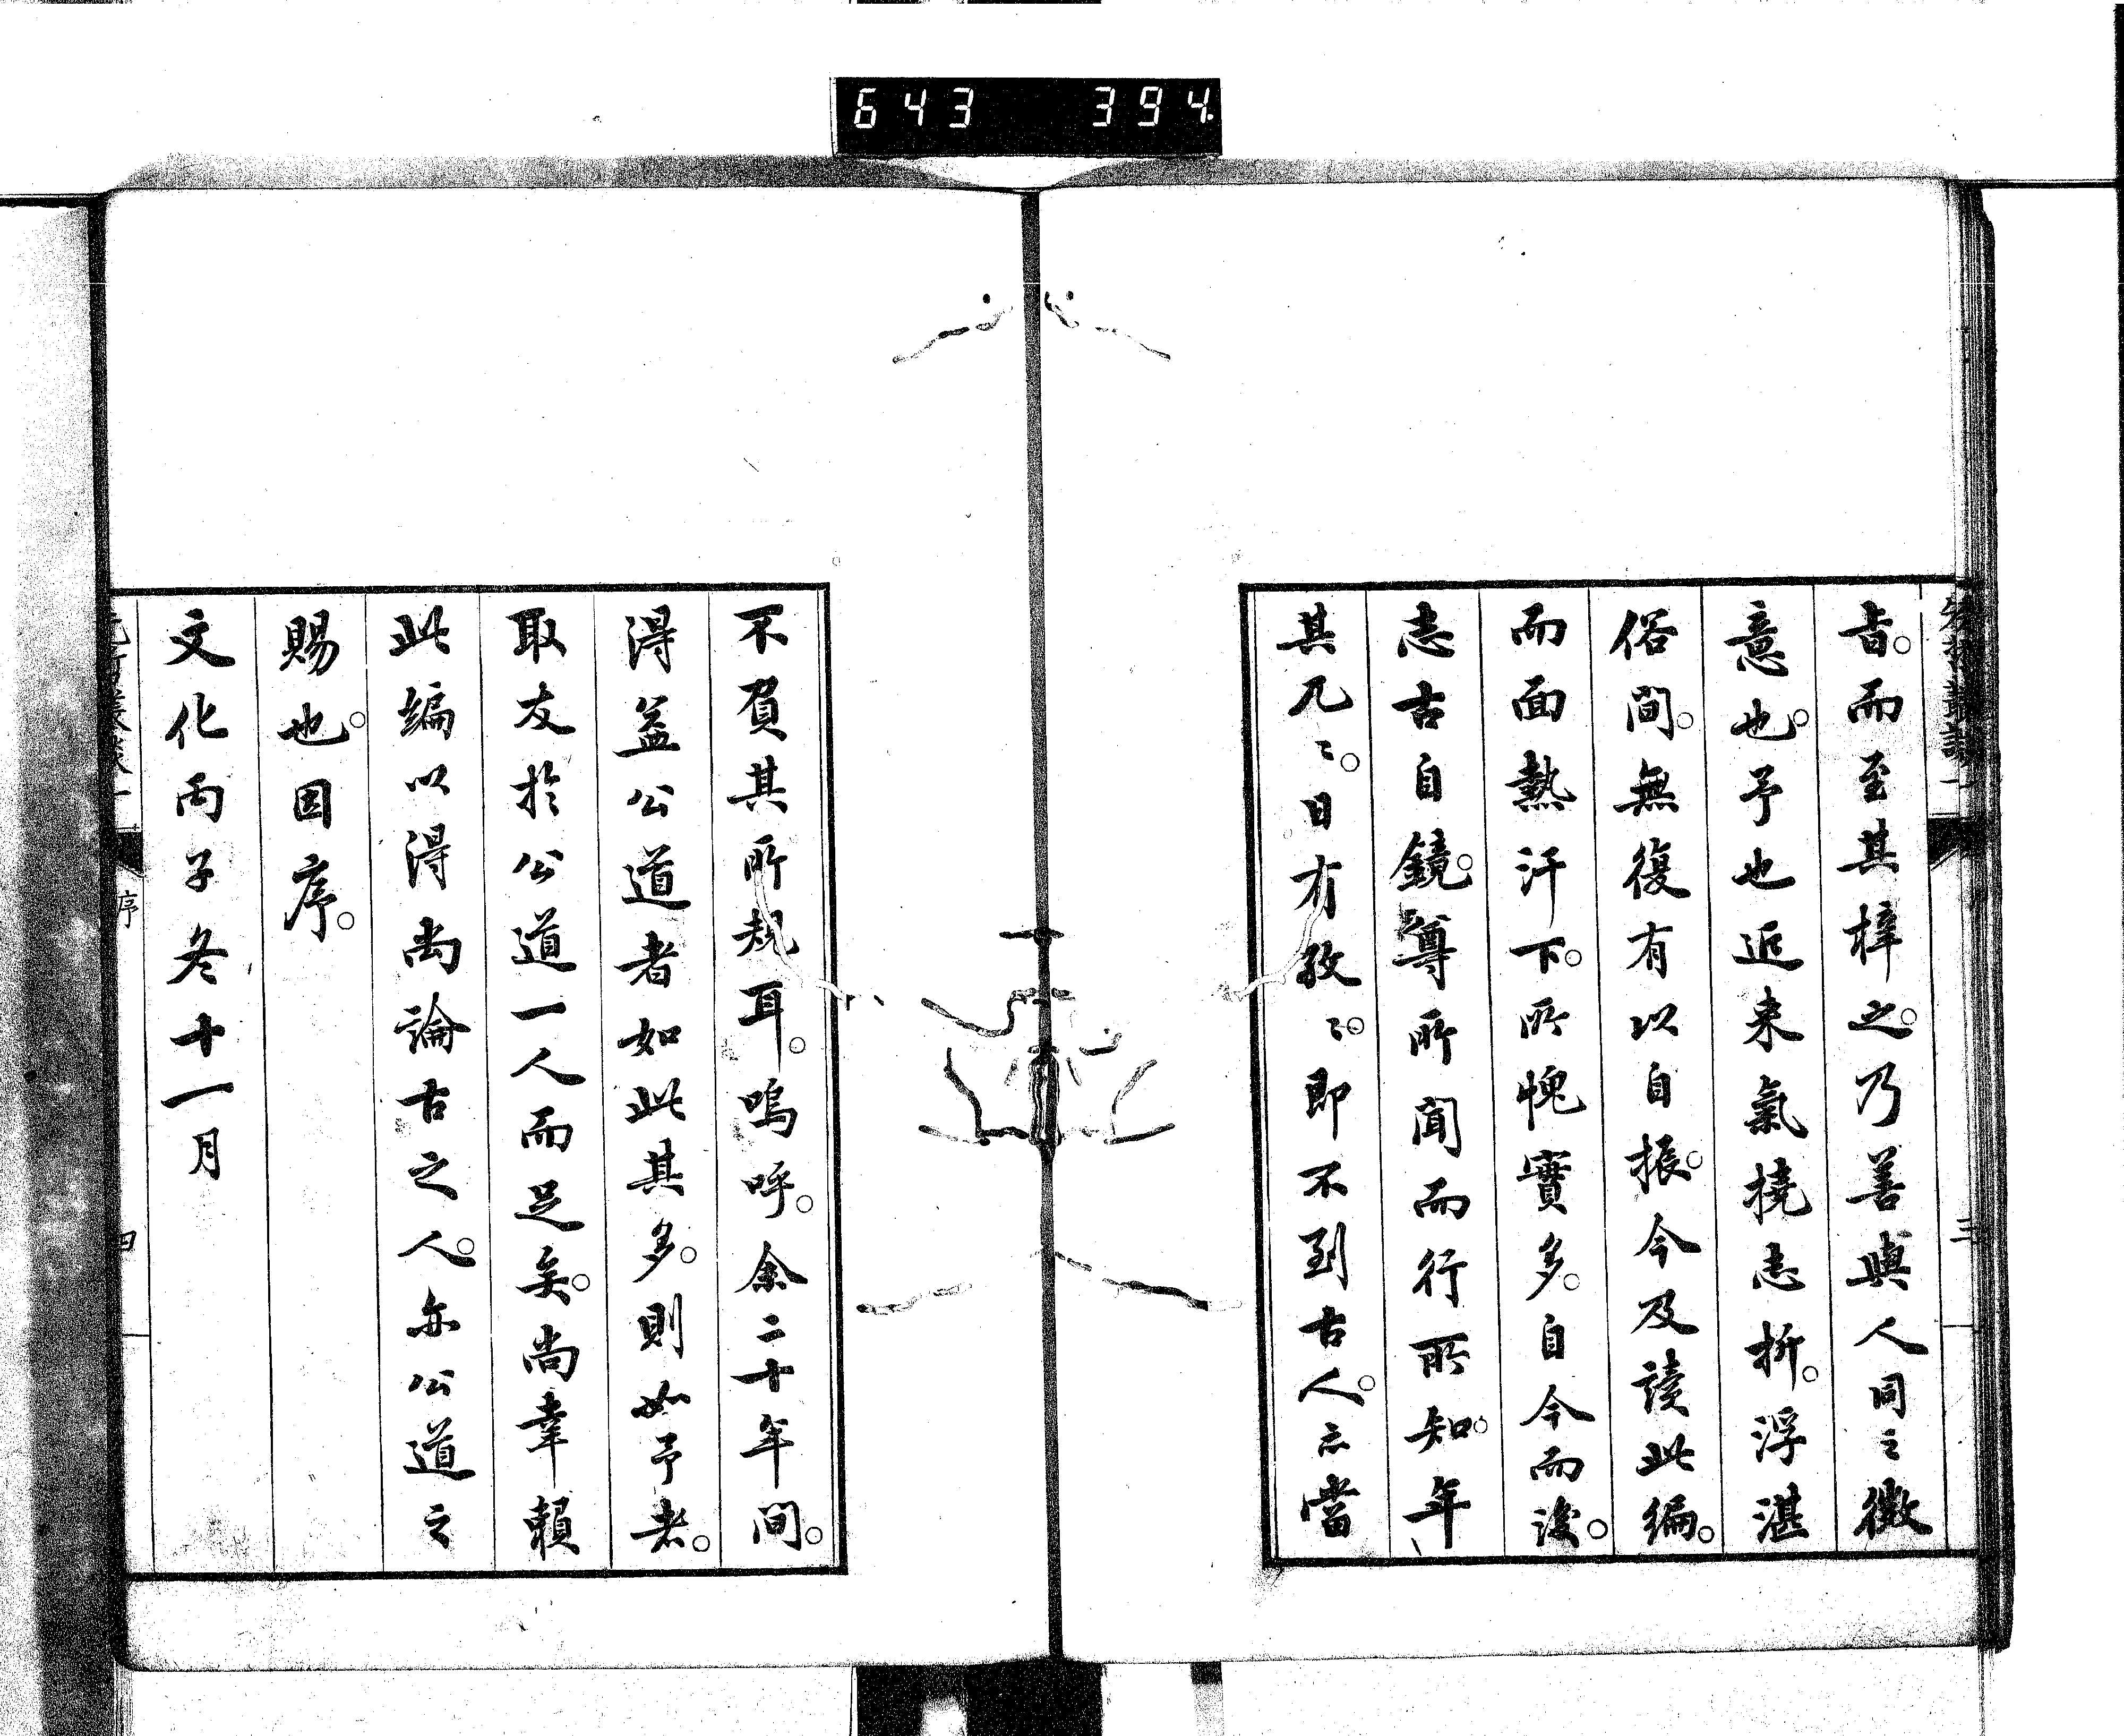 643 394
旨。而至其梓之。乃善與人同之微
意也。予也近来氣撓志折。浮湛
俗間。無復有以自振。今及讀此編。
而面熱汗下。所愧實多。自今而後。
志古自鏡。尊所聞而行所知。年
其几〻。日有孜〻。即不到古人。亦當
不負其所規耳。嗚呼。余二十年間。
得益公道者如此其多。則如予者。
取友於公道一人而足矣。尚幸賴
此編以得尚論古之人。亦公道之
賜也。因序。
文化丙子冬十一月
序
三
四